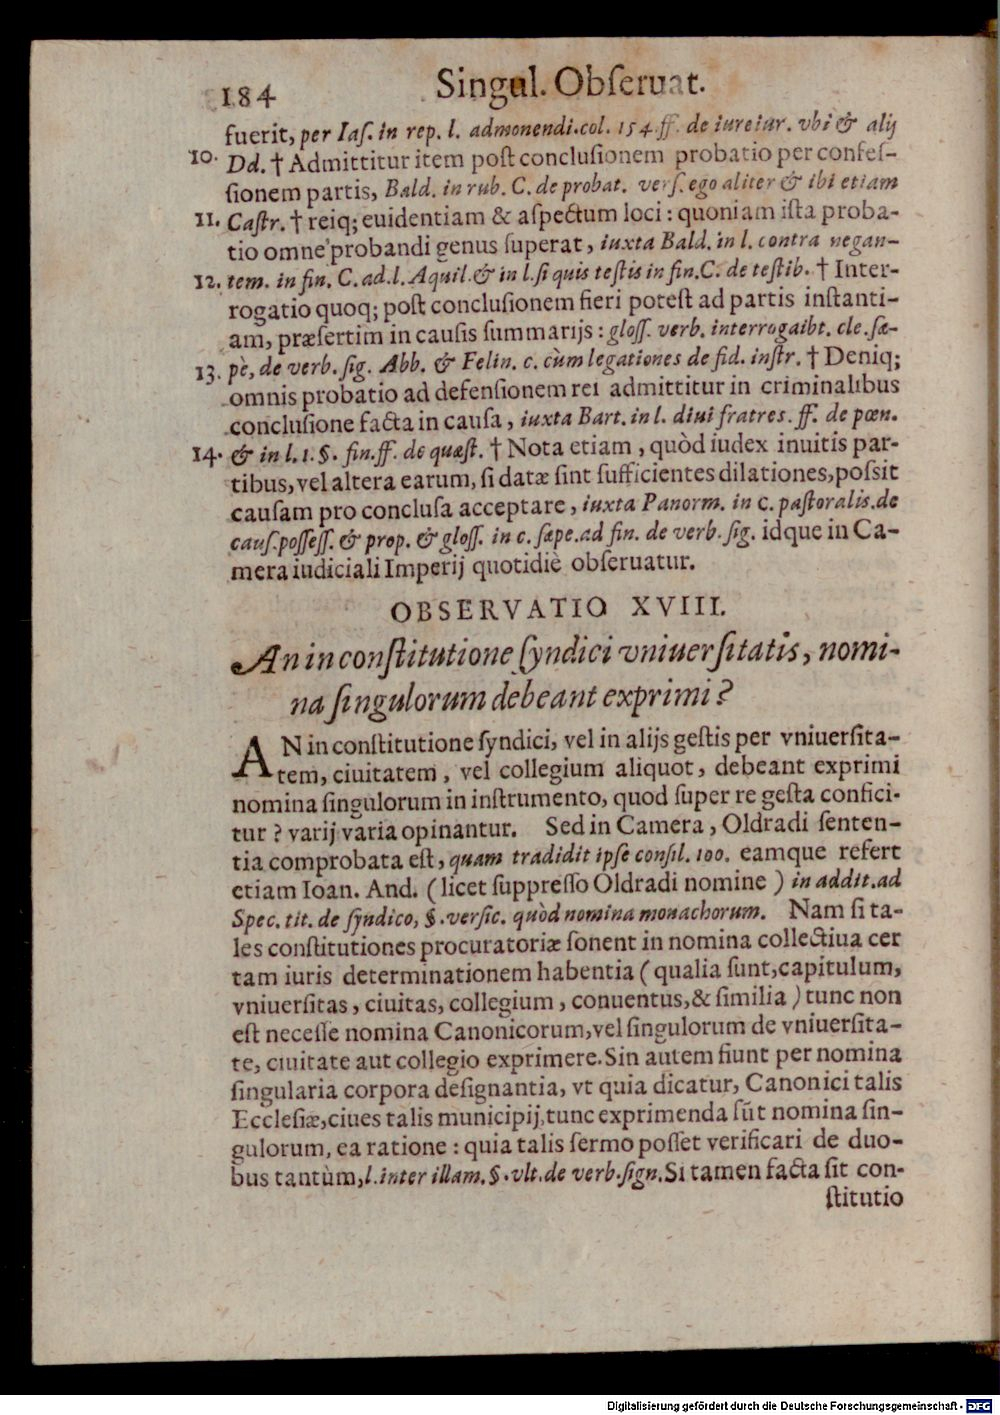 184 Singul. Obſeruat.
fuerit, per Iaſ. in rep. l. admonendi. col. 154. ff. de iureiur. vbi & alij
10. Dd. † Admittitur item poſt concluſionem probatio per confeſ-
ſionem partis, Bald. in rub. C. de probat. verſ. ego aliter & ibi etiam
11. Caſtr. † reiq; euidentiam & aſpectum loci : quoniam iſta proba-
tio omne probandi genus ſuperat, iuxta Bald. in l. contra negan-
12. tem. in fin. C. ad.l. Aquil. & in l. ſi quis teſtis in fin. C. de teſtib. † Inter-
rogatio quoq; poſt concluſionem fieri poteſt ad partis inſtanti-
am, præſertim in cauſis ſummarijs : gloſſ. verb. interrogaibt. cle. ſæ-
13. pè, de verb. ſig. Abb. & Felin. c. cùm legationes de fid. inſtr. † Deniq;
omnis probatio ad defenſionem rei admittitur in criminalibus
concluſione facta in cauſa, iuxta Bart. in l. diui fratres. ff. de pœn.
14. & in l. 1. §. fin. ff. de quæſt. † Nota etiam, quòd iudex inuitis par-
tibus, vel altera earum, ſi datæ ſint ſufficientes dilationes, poſſit
cauſam pro concluſa acceptare, iuxta Panorm. in c. paſtoralis. de
cauſ. poſſeſſ. & prop. & gloſſ. in c. ſæpe. ad fin. de verb. ſig. idque in Ca-
mera iudiciali Imperij quotidiè obſeruatur.
OBSERVATIO XVIII.
An in conſtitutione ſyndici vniuerſitatis, nomi-
na ſingulorum debeant exprimi?
AN in conſtitutione ſyndici, vel in alijs geſtis per vniuerſita-
tem, ciuitatem, vel collegium aliquot, debeant exprimi
nomina ſingulorum in inſtrumento, quod ſuper re geſta confici-
tur ? varij varia opinantur. Sed in Camera, Oldradi ſenten-
tia comprobata eſt, quam tradidit ipſe conſil. 100. eamque refert
etiam Ioan. And. ( licet ſuppreſſo Oldradi nomine ) in addit. ad
Spec. tit. de ſyndico, §. verſic. quòd nomina monachorum. Nam ſi ta-
les conſtitutiones procuratoriæ ſonent in nomina collectiua cer
tam iuris determinationem habentia ( qualia ſunt, capitulum,
vniuerſitas, ciuitas, collegium, conuentus, & ſimilia ) tunc non
eſt neceſſe nomina Canonicorum, vel ſingulorum de vniuerſita-
te, ciuitate aut collegio exprimere. Sin autem fiunt per nomina
ſingularia corpora deſignantia, vt quia dicatur, Canonici talis
Eccleſiæ, ciues talis municipij, tunc exprimenda ſũt nomina ſin-
gulorum, ea ratione : quia talis ſermo poſſet verificari de duo-
bus tantùm, l. inter illam. §. vlt. de verb. ſign. Si tamen facta ſit con-
ſtitutio
Digitalisierung gefördert durch die Deutsche Forschungsgemeinschaft - DFG